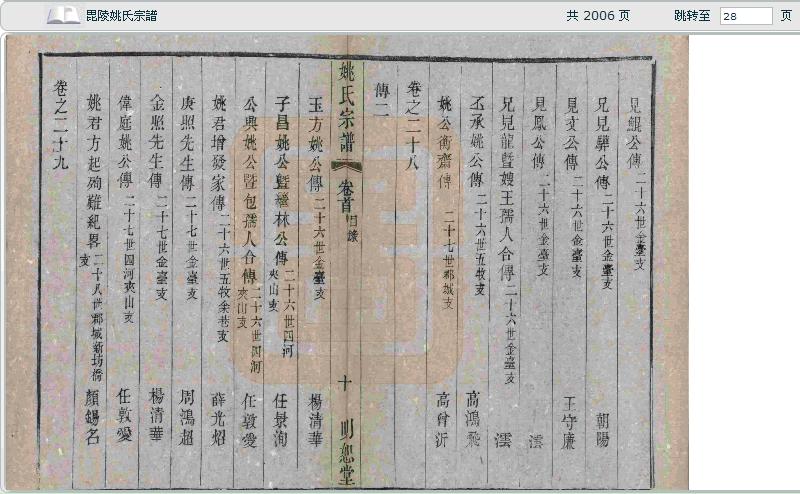 毘陵姚氏宗譜
共 2006 页
跳转至 28 页
見鯤公傳 二十六世金臺支
兄見驊公傳 二十六世金臺支 朝陽
見文公傳 二十六世金臺支 王守廉
見鳳公傳 二十六世金臺支 澐
兄見龍暨嫂王孺人合傳 二十六世金臺支 澐
丕承姚公傳 二十六世五牧支 高鴻飛
姚公衡齋傳 二十七世郡城支 高曾沂
卷之二十八
傳二
姚氏宗譜 卷首 目錄 十 明恕堂
玉方姚公傳 二十六世金臺支 楊清華
子昌姚公暨繼林公傳 二十六世四河夾山支 任景洵
公典姚公暨包孺人合傳 二十六世四河夾山支 任敦愛
姚君增發家傳 二十六世五牧余巷支 薛光炤
庚照先生傳 二十七世金臺支 周鴻超
金照先生傳 二十七世金臺支 楊清華
偉庭姚公傳 二十七世四河夾山支 任敦愛
姚君方起殉難紀畧 二十八世郡城新坊橋支 顏錫名
卷之二十九